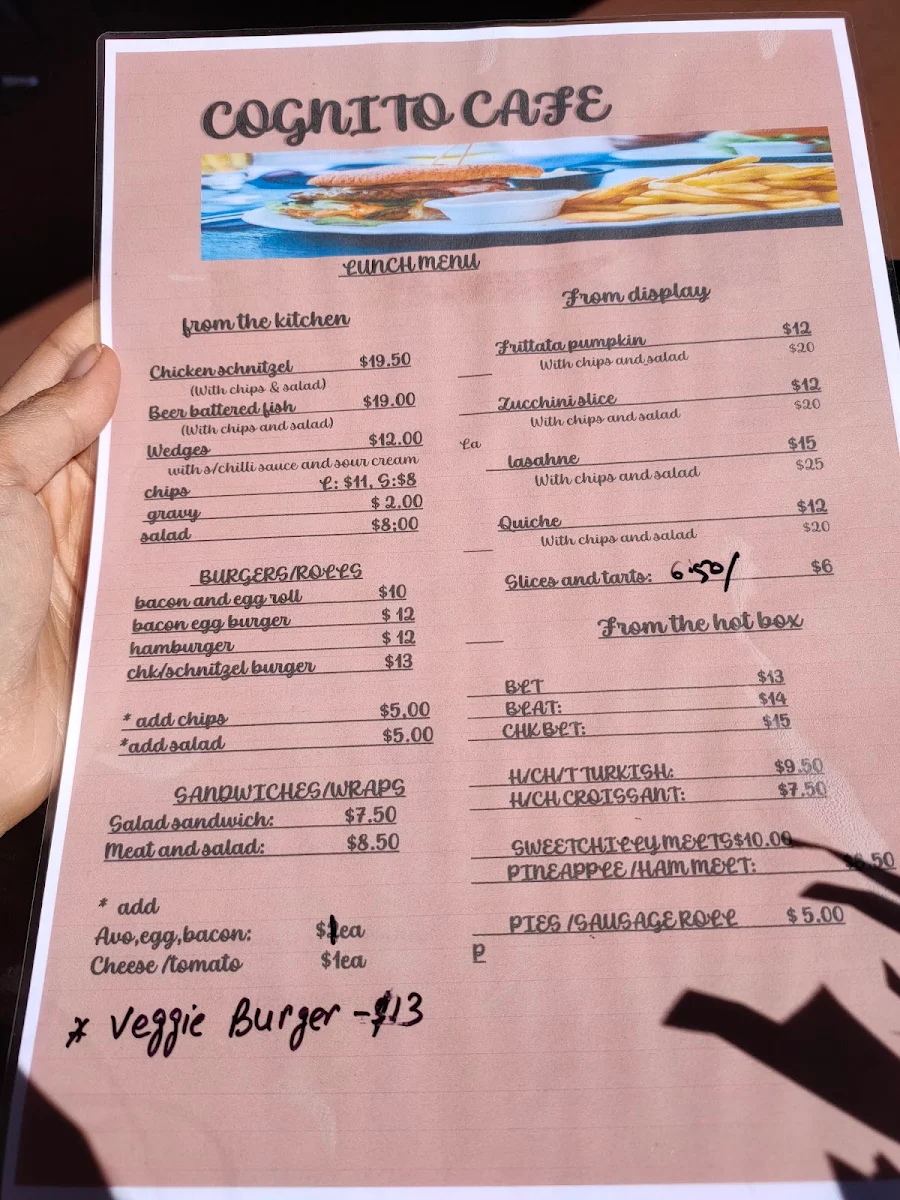 COGNITO CAFE
LUNCH MENU
from the kitchen
Chicken schnitzel $19.50
(With chips & salad)
Beer battered fish $19.00
(With chips and salad)
Wedges $12.00
with s/chilli sauce and sour cream
chips L: $11, S:$8
gravy $ 2.00
salad $8;00
BURGERS/ROLLS
bacon and egg roll $10
bacon egg burger $ 12
hamburger $ 12
chk/schnitzel burger $13
* add chips $5,00
*add salad $5.00
SANDWICHES/WRAPS
Salad sandwich: $7.50
Meat and salad: $8.50
* add
Avo,egg,bacon: $1ea
Cheese /tomato $1ea
* Veggie Burger - $13
From display
Frittata pumpkin $12
With chips and salad $20
Zucchini slice $12
With chips and salad $20
La
lasahne $15
With chips and salad $25
Quiche $12
With chips and salad $20
Slices and tarts: 6.50/ $6
From the hot box
BLT $13
BLAT: $14
CHK BLT: $15
H/CH/T TURKISH: $9.50
H/CH CROISSANT: $7.50
SWEETCHILLY MELTS$10.00
PINEAPPLE /HAM MELT:
PIES /SAUSAGE ROLL $ 5.00
P